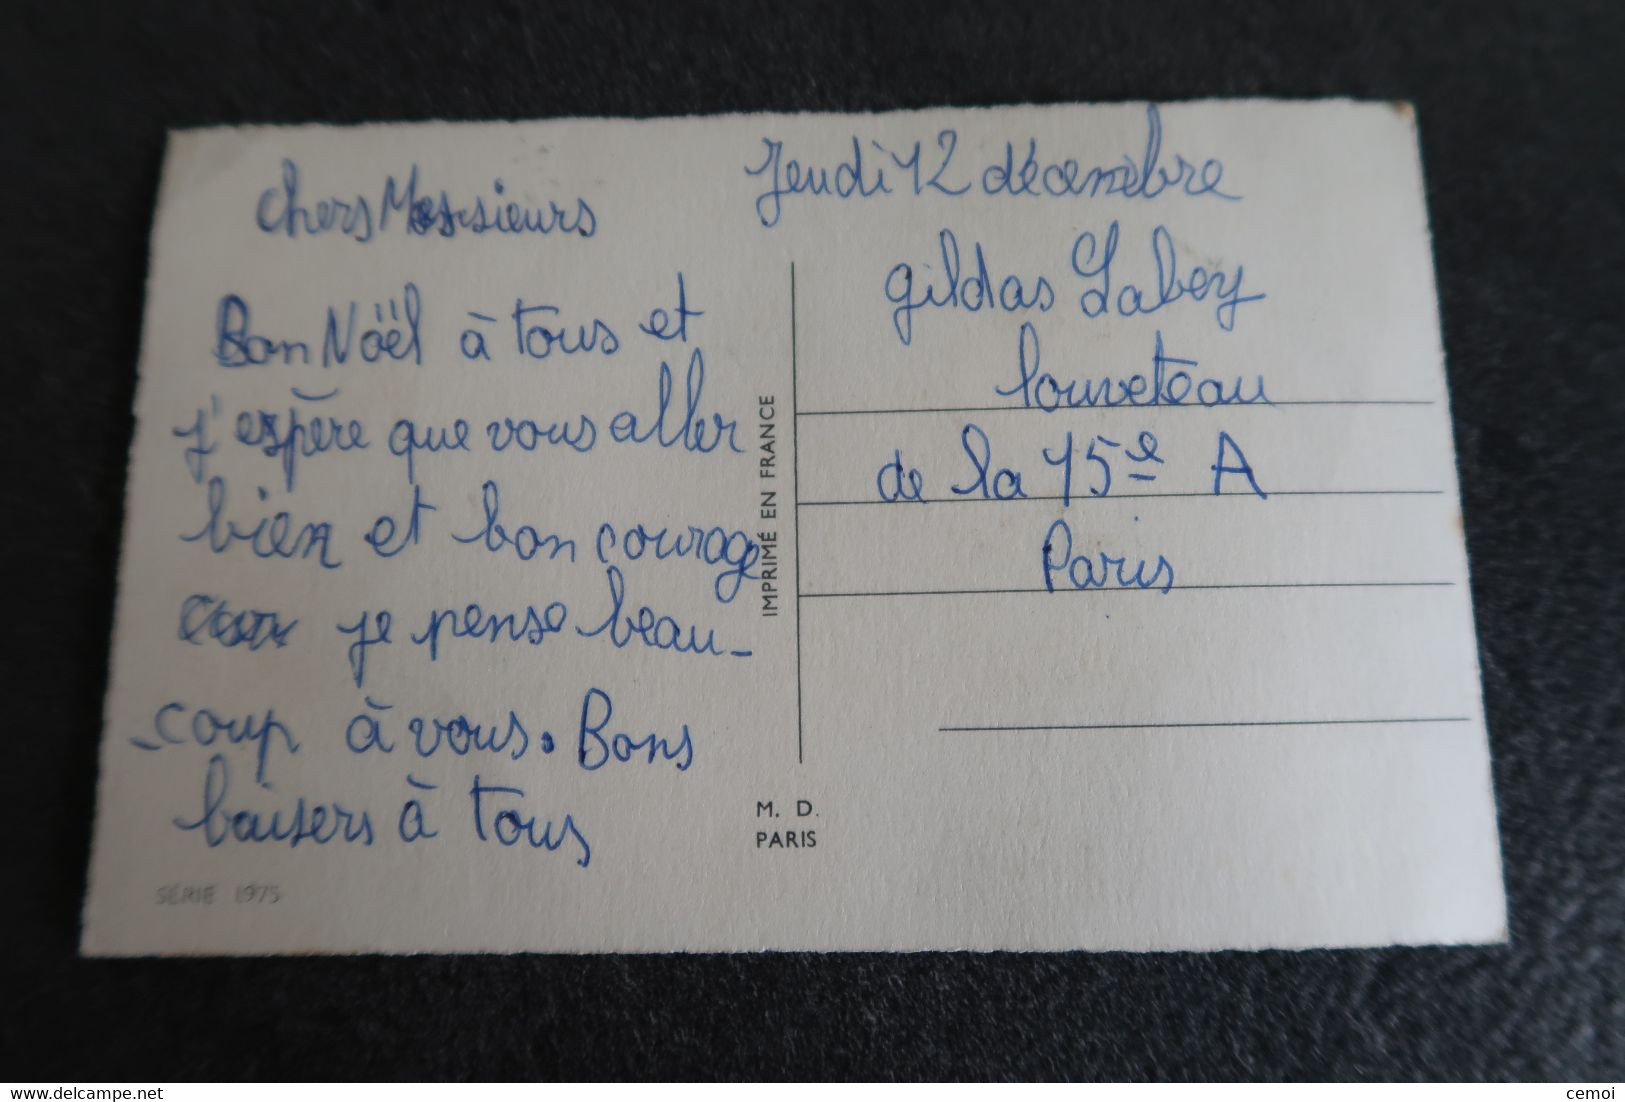 Jeudi 12 décembre
chers Messieurs
Bon Nöël à tous et
j'espère que vous aller
bien et bon courage
je pense beau-
-coup à vous. Bons
baisers à tous
SÉRIE 1975
IMPRIMÉ EN FRANCE
M. D.
PARIS
gildas Labey
louveteau
de la 15e A
Paris
delcampe.net
cemoi